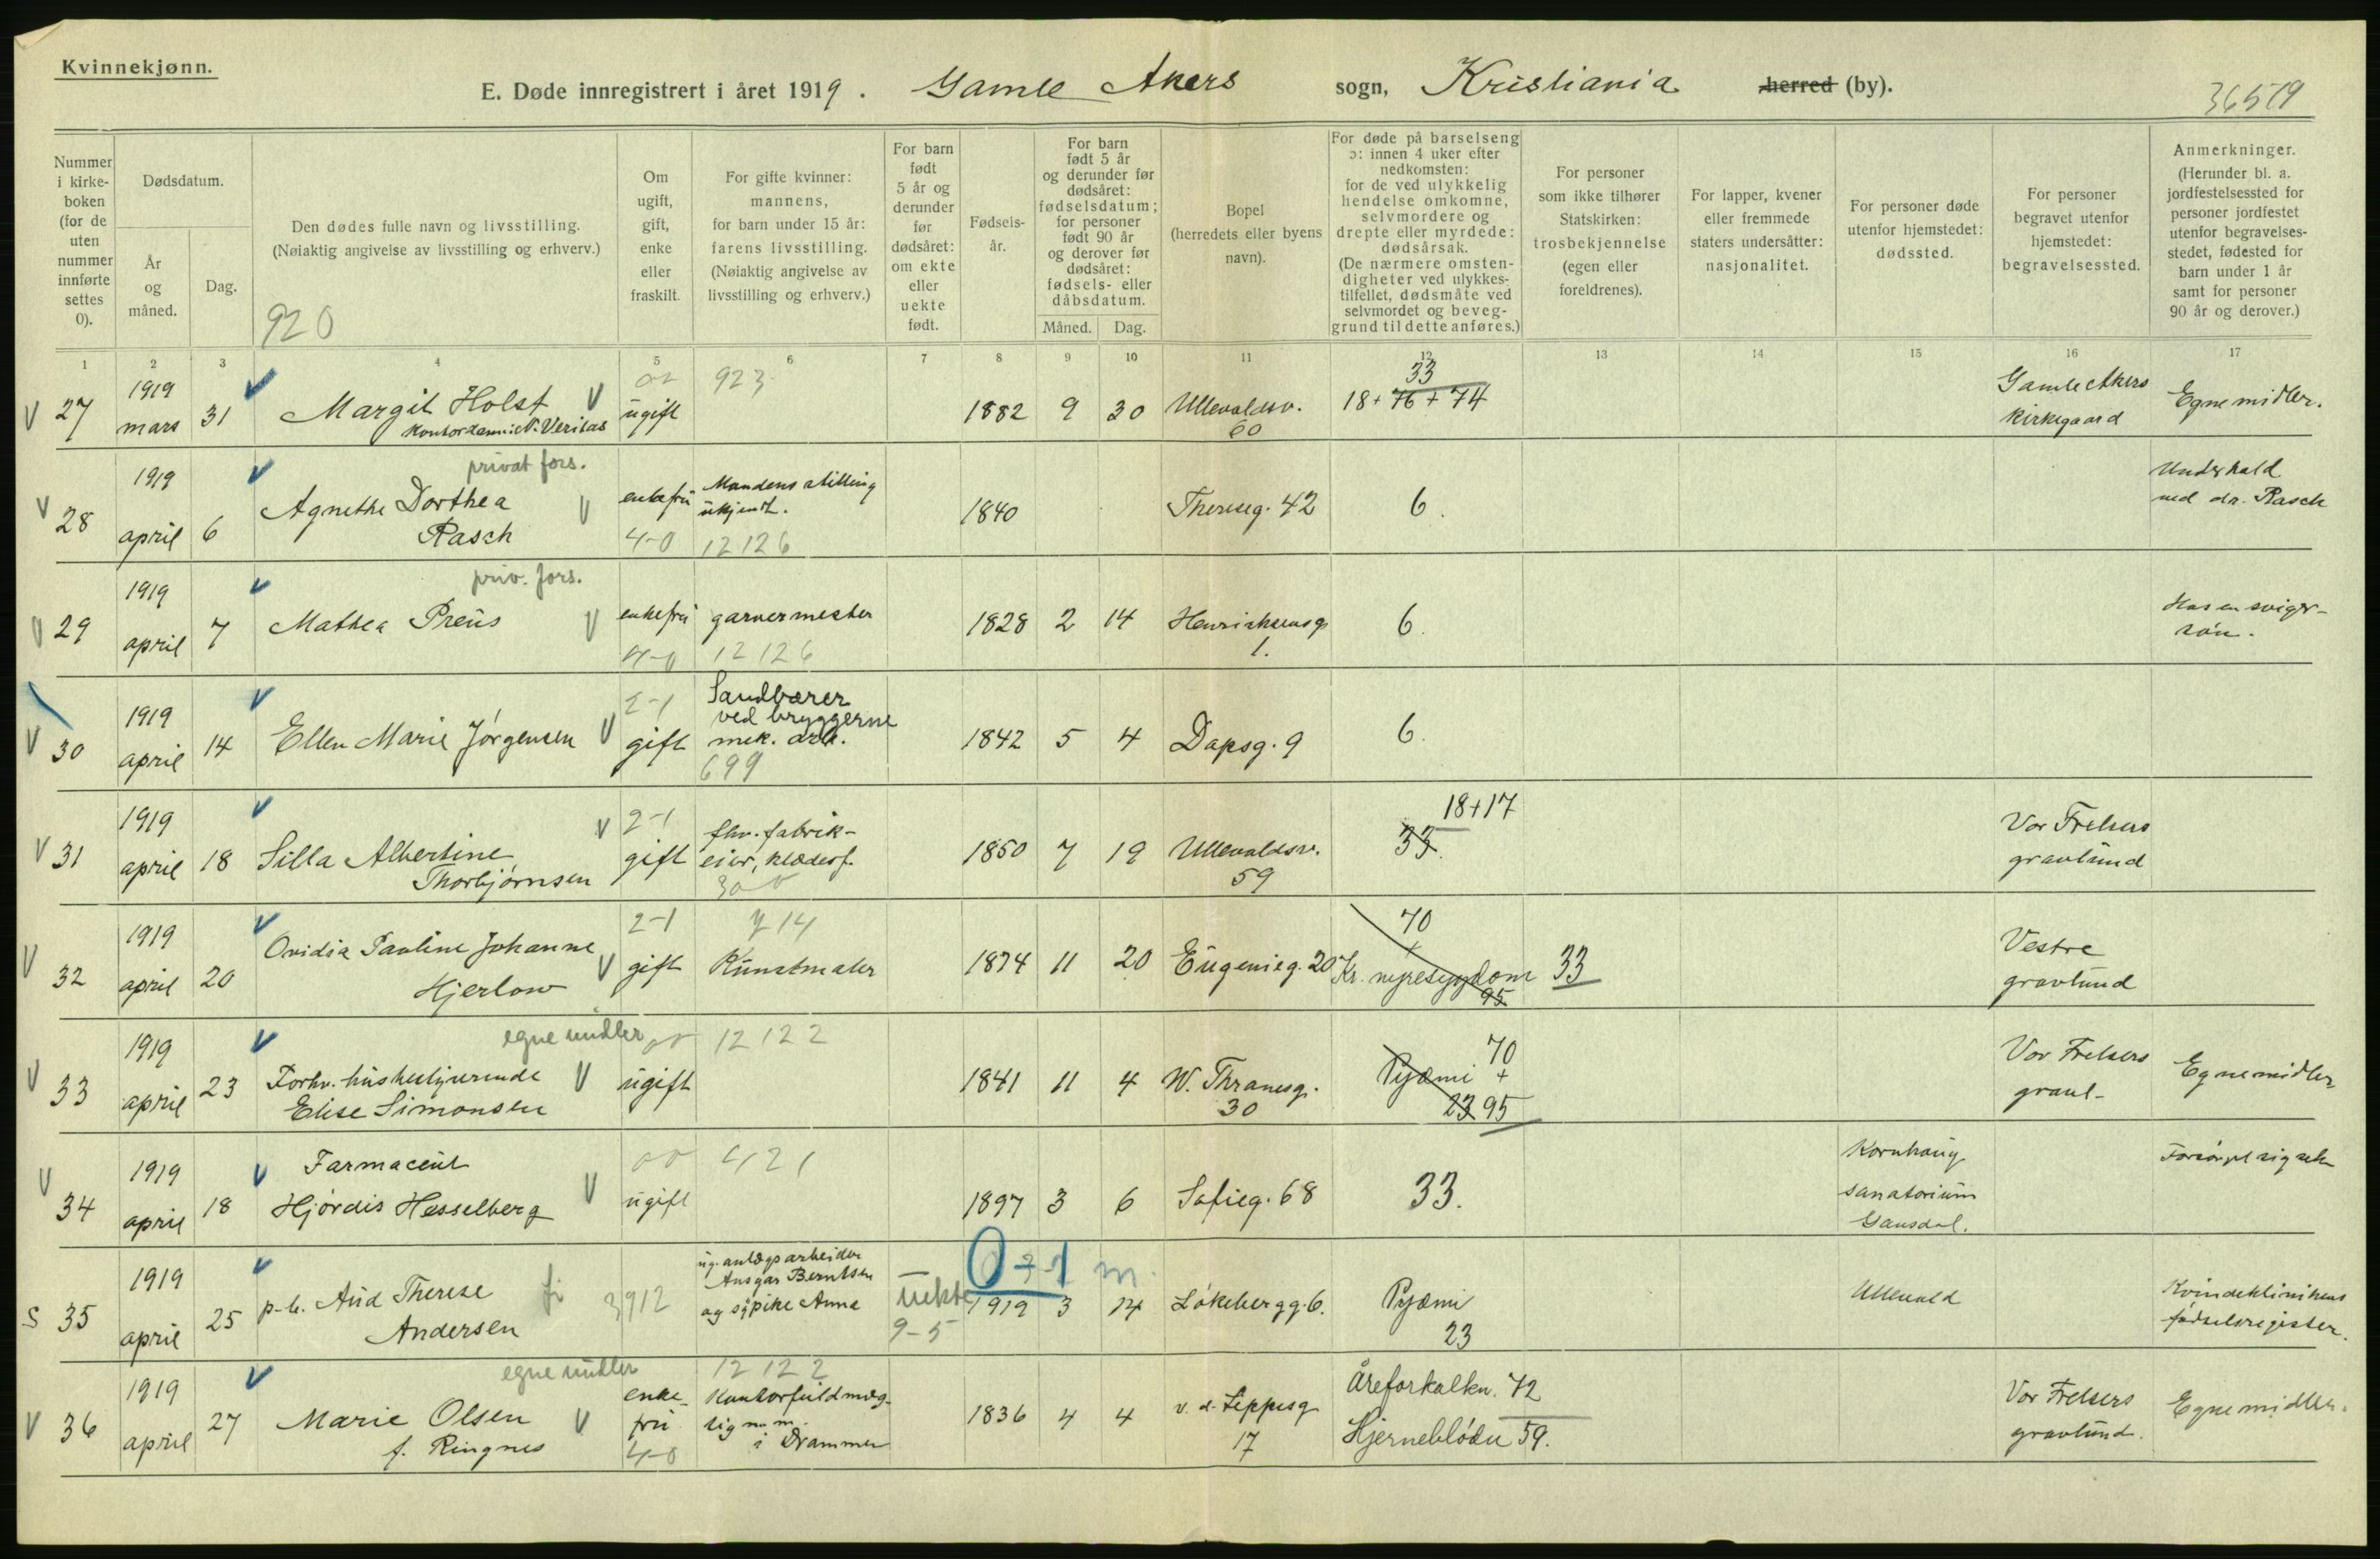 Kvinnekjønn.
E. Døde innregistrert i året 1919. Gamle Akers sogn, Kristiania herred (by).
36579
Nummer i kirkeboken (for de uten nummer innførte settes 0).
Dødsdatum.
År og måned.
Dag.
Den dødes fulle navn og livsstilling.
(Nøiaktig angivelse av livsstilling og erhverv.)
920
Om ugift, gift, enke eller fraskilt.
For gifte kvinner: mannens, for barn under 15 år: farens livsstilling. (Nøiaktig angivelse av livsstilling og erhverv.)
For barn født 5 år og derunder før dødsåret: om ekte eller uekte født.
Fødselsår.
For barn født 5 år og derunder før dødsåret: fødselsdatum; for personer født 90 år og derover før dødsåret: fødsels- eller dåbsdatum.
Måned. Dag.
Bopel (herredets eller byens navn).
For døde på barselseng ɔ: innen 4 uker efter nedkomsten: for de ved ulykkelig hendelse omkomne, selvmordere og drepte eller myrdede: dødsårsak. (De nærmere omstendigheter ved ulykkestilfellet, dødsmåte ved selvmordet og beveggrund til dette anføres.)
For personer som ikke tilhører Statskirken: trosbekjennelse (egen eller foreldrenes).
For lapper, kvener eller fremmede staters undersåtter: nasjonalitet.
For personer døde utenfor hjemstedet: dødssted.
For personer begravet utenfor hjemstedet: begravelsessted.
Anmerkninger. (Herunder bl. a. jordfestelsessted for personer jordfestet utenfor begravelsesstedet, fødested for barn under 1 år samt for personer 90 år og derover.)
1 2 3 4 5 6 7 8 9 10 11 12 13 14 15 16 17
V 27 1919 mars 31 Margit Holst V ugift 923 1882 9 30 Ullevaldsv. 60 33 18+76+74 Gamle Akers Kirkegaard Egne midler.
Kontordame i N. Veritas
V 28 1919 april 6 Agnethe Dorthea Rasch privat fors. V enkefrü Mandens stilling ukjendt. 4-0 12126 1840 Thereseg. 42 6. Underhold ved dr. Rasch
V 29 1919 april 7 Mathea Preüs priv. fors. V enkefrü garvermester 4-0 12126 1828 2 14 Henrichsensg 1. 6. Hos en svigersøn.
V 30 1919 april 14 Ellen Marie Jørgensen V 2-1 gift Sandbærer ved bryggerne mek. arb. 699 1842 5 4 Dapsg. 9 6.
V 31 1919 april 18 Silla Albertine Thorbjørnsen V 2-1 gift fhv. fabrikeier, klædesf. 1850 7 19 Ullevaldsv. 59 18+17 33. Vor Frelsers gravlünd
V 32 1919 april 20 Ovidia Pauline Johanne Hjerlow V 2-1 gift 714 Künstmaler 1874 11 20 Eügenieg. 20 70 + Kr. nyresygdom 95 33 Vestre gravlünd
V 33 1919 april 23 Forhv. hüsbestyrerinde Elise Simonsen egne midler V ügift 12122 1841 11 4 W. Thranesg. 30 Pyæmi 70 + 23 95 Vor Frelsers gravl- Egne midler
V 34 1919 april 18 Farmaceüt Hjørdis Hesselberg V ügift 421 1897 3 6 Sofieg. 68 33. Kornhaüg sanatoriüm Gausdal. Forsørget sig selv
S 35 1919 april 25 p-b. Aüd Therese Andersen 3912 üg. anlægsarbeider Ansgar Berntsen og sypike Anna uekte 9-5 0-1 m 1919 3 14 Løkebergg. 6. Pyæmi 23 Ullevold Kvindeklinikens fødselsregister.
V 36 1919 april 27 Marie Olsen f. Ringnes egne midler V enkefrü 4-0 12122 Kontorfüldmægtig m.m. i Drammen 1836 4 4 v. d. Leppesg 17 Åreforkalkn. 72 Hjerneblødn 59. Vor Frelsers gravlünd. Egne midler.